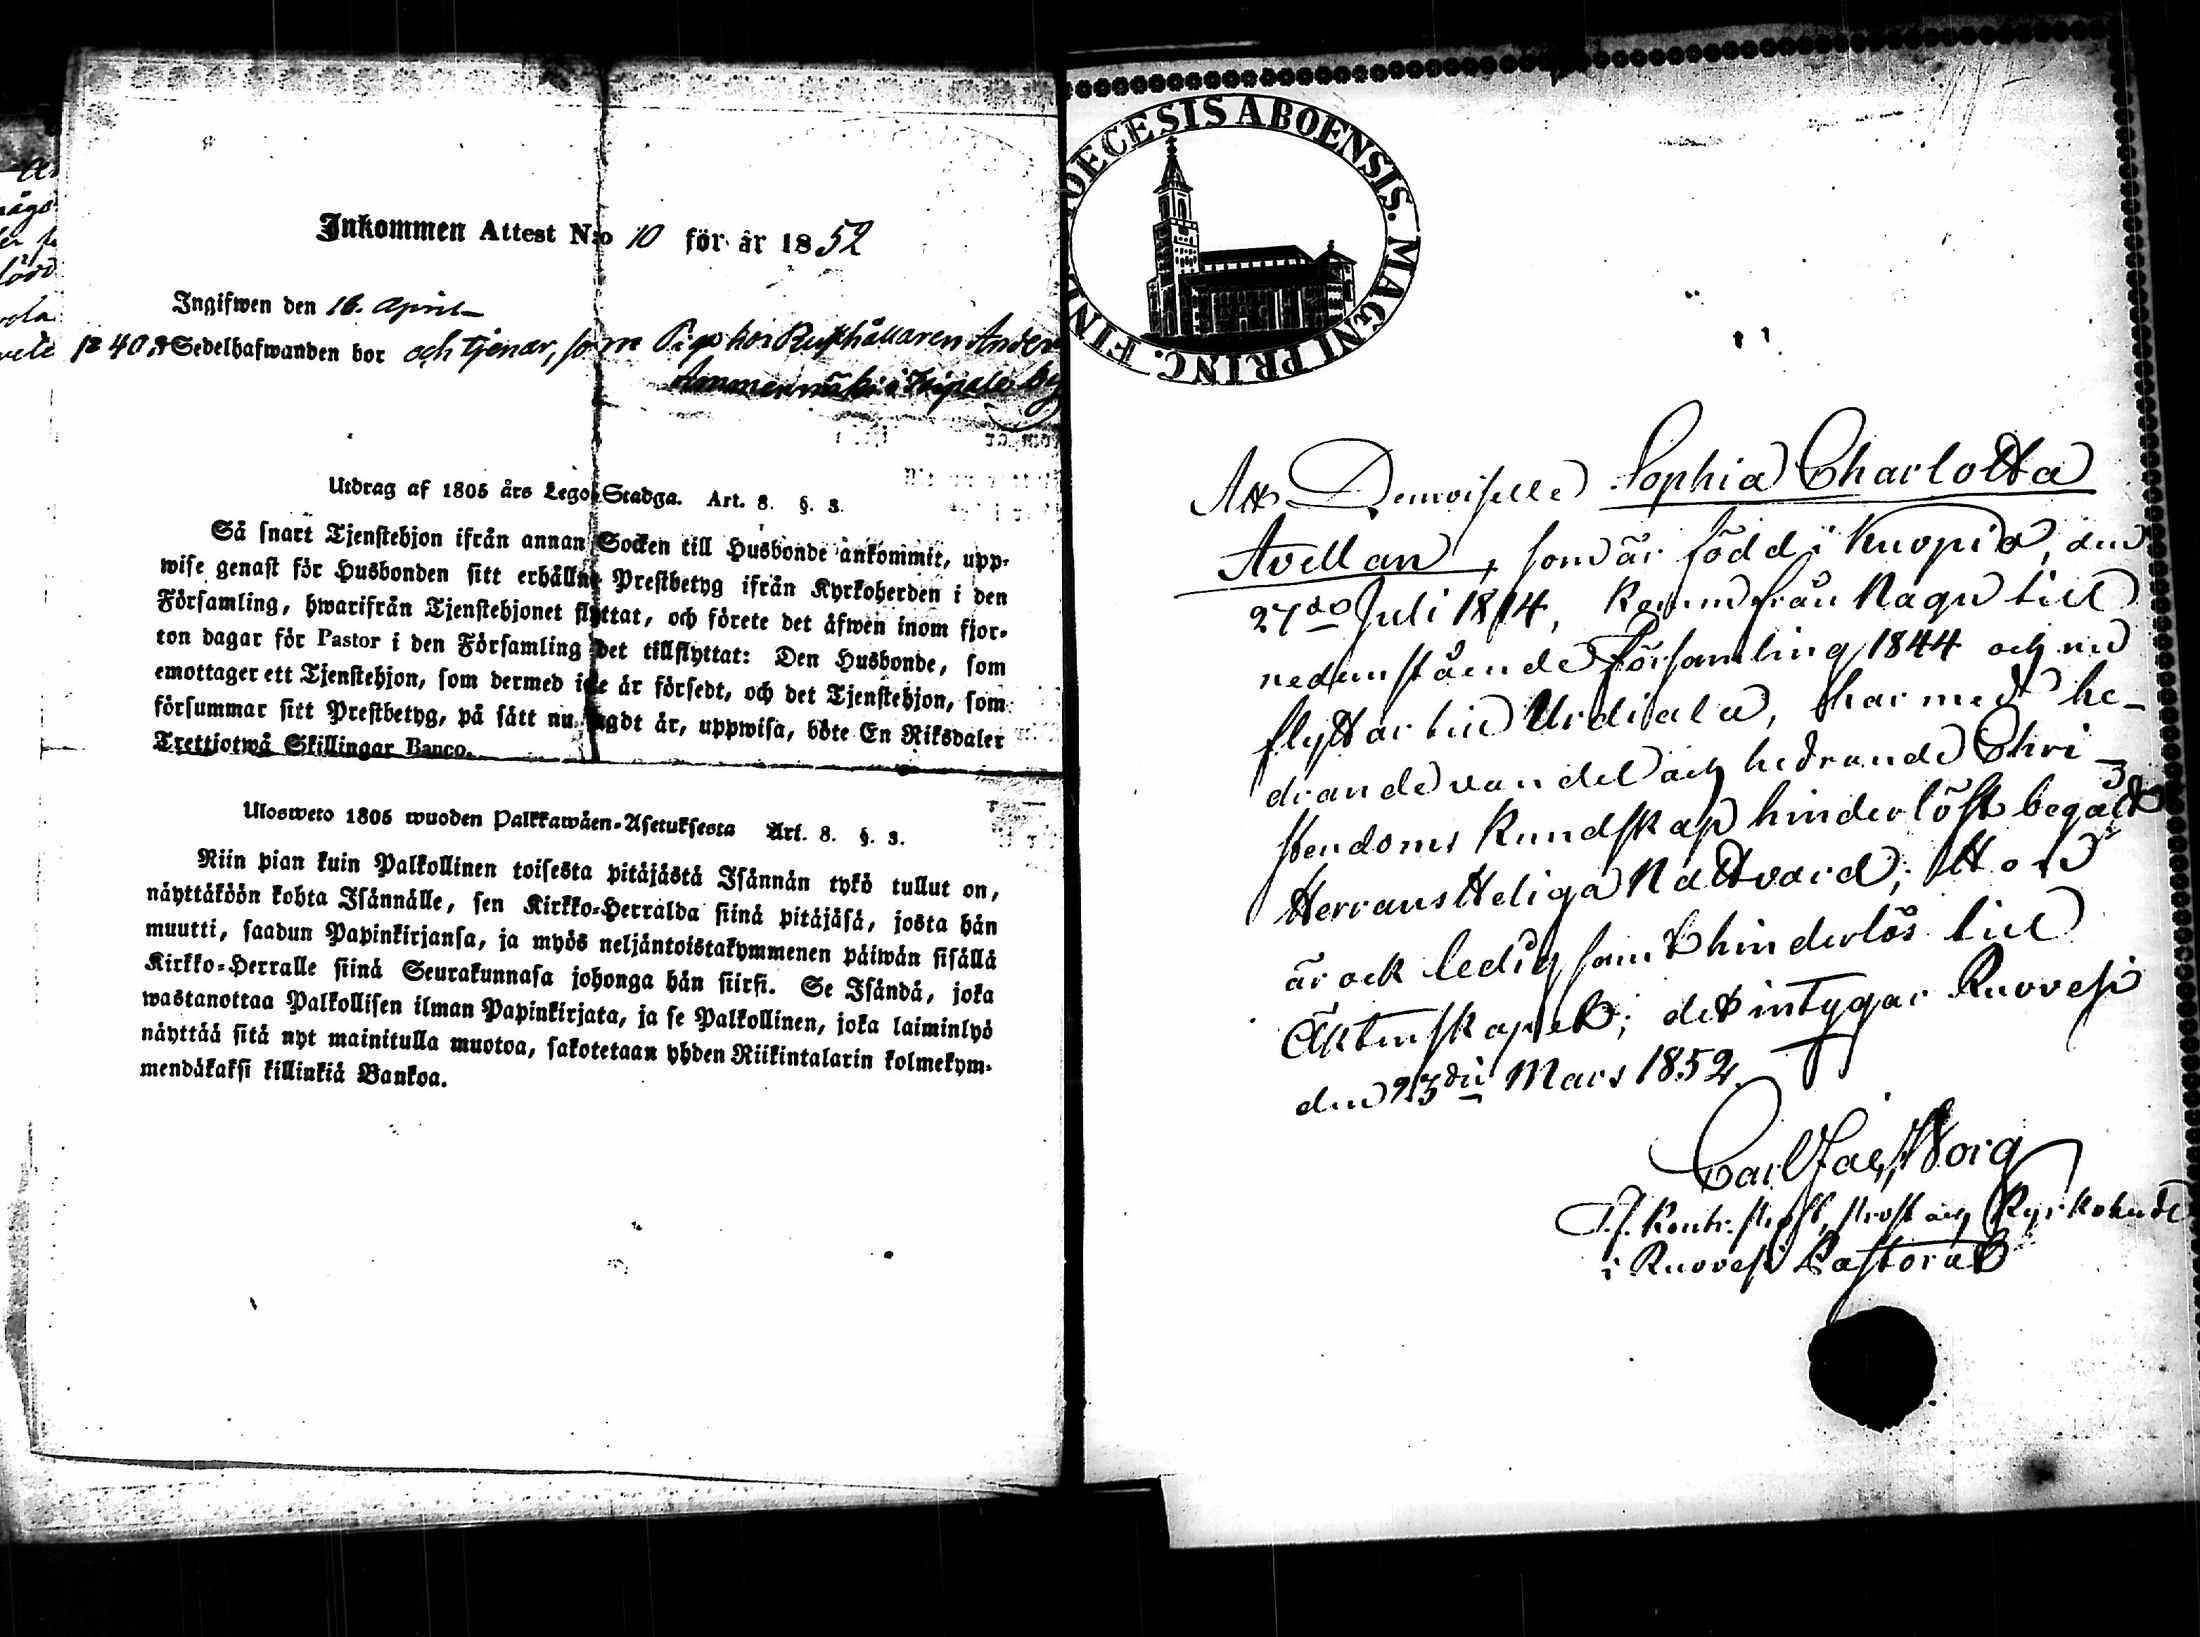 Inkommen Attest N:o 10 för år 1852
Ingifwen den 16. April
Sedelhafwanden bor och tjenar, som Piga hos Rusthållaren Ander
by
Utdrag af 1805 års Lego-Stadga. Art. 8. §. 3.
Så snart Tjenstehjon ifrån annan Socken till Husbonde ankommit, upp-
wise genast för Husbonden sitt erhållne Prestbetyg ifrån Kyrkoherden i den
Församling, hwarifrån Tjenstehjonet flyttat, och förete det äfwen inom fjor-
ton dagar för Pastor i den Församling det tillflyttat: Den Husbonde, som
emottager ett Tjenstehjon, som dermed icke är försedt, och det Tjenstehjon, som
försummar sitt Prestbetyg, på sätt nu sagdt är, uppwisa, böte En Riksdaler
Trettiotwå Skillingar Banco.
Ulosweto 1805 wuoden Palkkawäen-Asetuksesta Art. 8. §. 3.
Niin pian kuin Palkollinen toisesta pitäjästä Isännän tykö tullut on,
näyttäköön kohta Isännälle, sen Kirkko-Herralda siinä pitäjäsä, josta hän
muutti, saadun Papinkirjansa, ja myös neljäntoistakymmenen päiwän sisällä
Kirkko-Herralle siinä Seurakunnasa johonga hän siirsi. Se Isändä, joka
wastanottaa Palkollisen ilman Papinkirjata, ja se Palkollinen, joka laiminlyö
näyttää sitä nyt mainitulla muotoa, sakotetaan yhden Riikintalarin kolmekym-
mendäkaksi killinkiä Bankoa.
DIOECESIS ABOENSIS. MAGNI PRINC. FINL
Att Demoiselle Sophia Charlotta
Avellan, som är född i Kuopio, den
27de Juli 1814, kommen från Nagu till
nedanstående Församling 1844 och nu
flyttar till Urdiala, har med he-
drande vandel och hedrande Chri-
stendoms kundskap hinderlöst begått
Herrans Heliga Nattvard; Hon
är ock ledig samt hinderlös till
Äktenskapet; det intygar Ruovesi
den 23die Mars 1852.
Carl Jac. Borg
T.f. Kontr. prost, prost och Kyrkoherde
i Ruovesi Pastorat